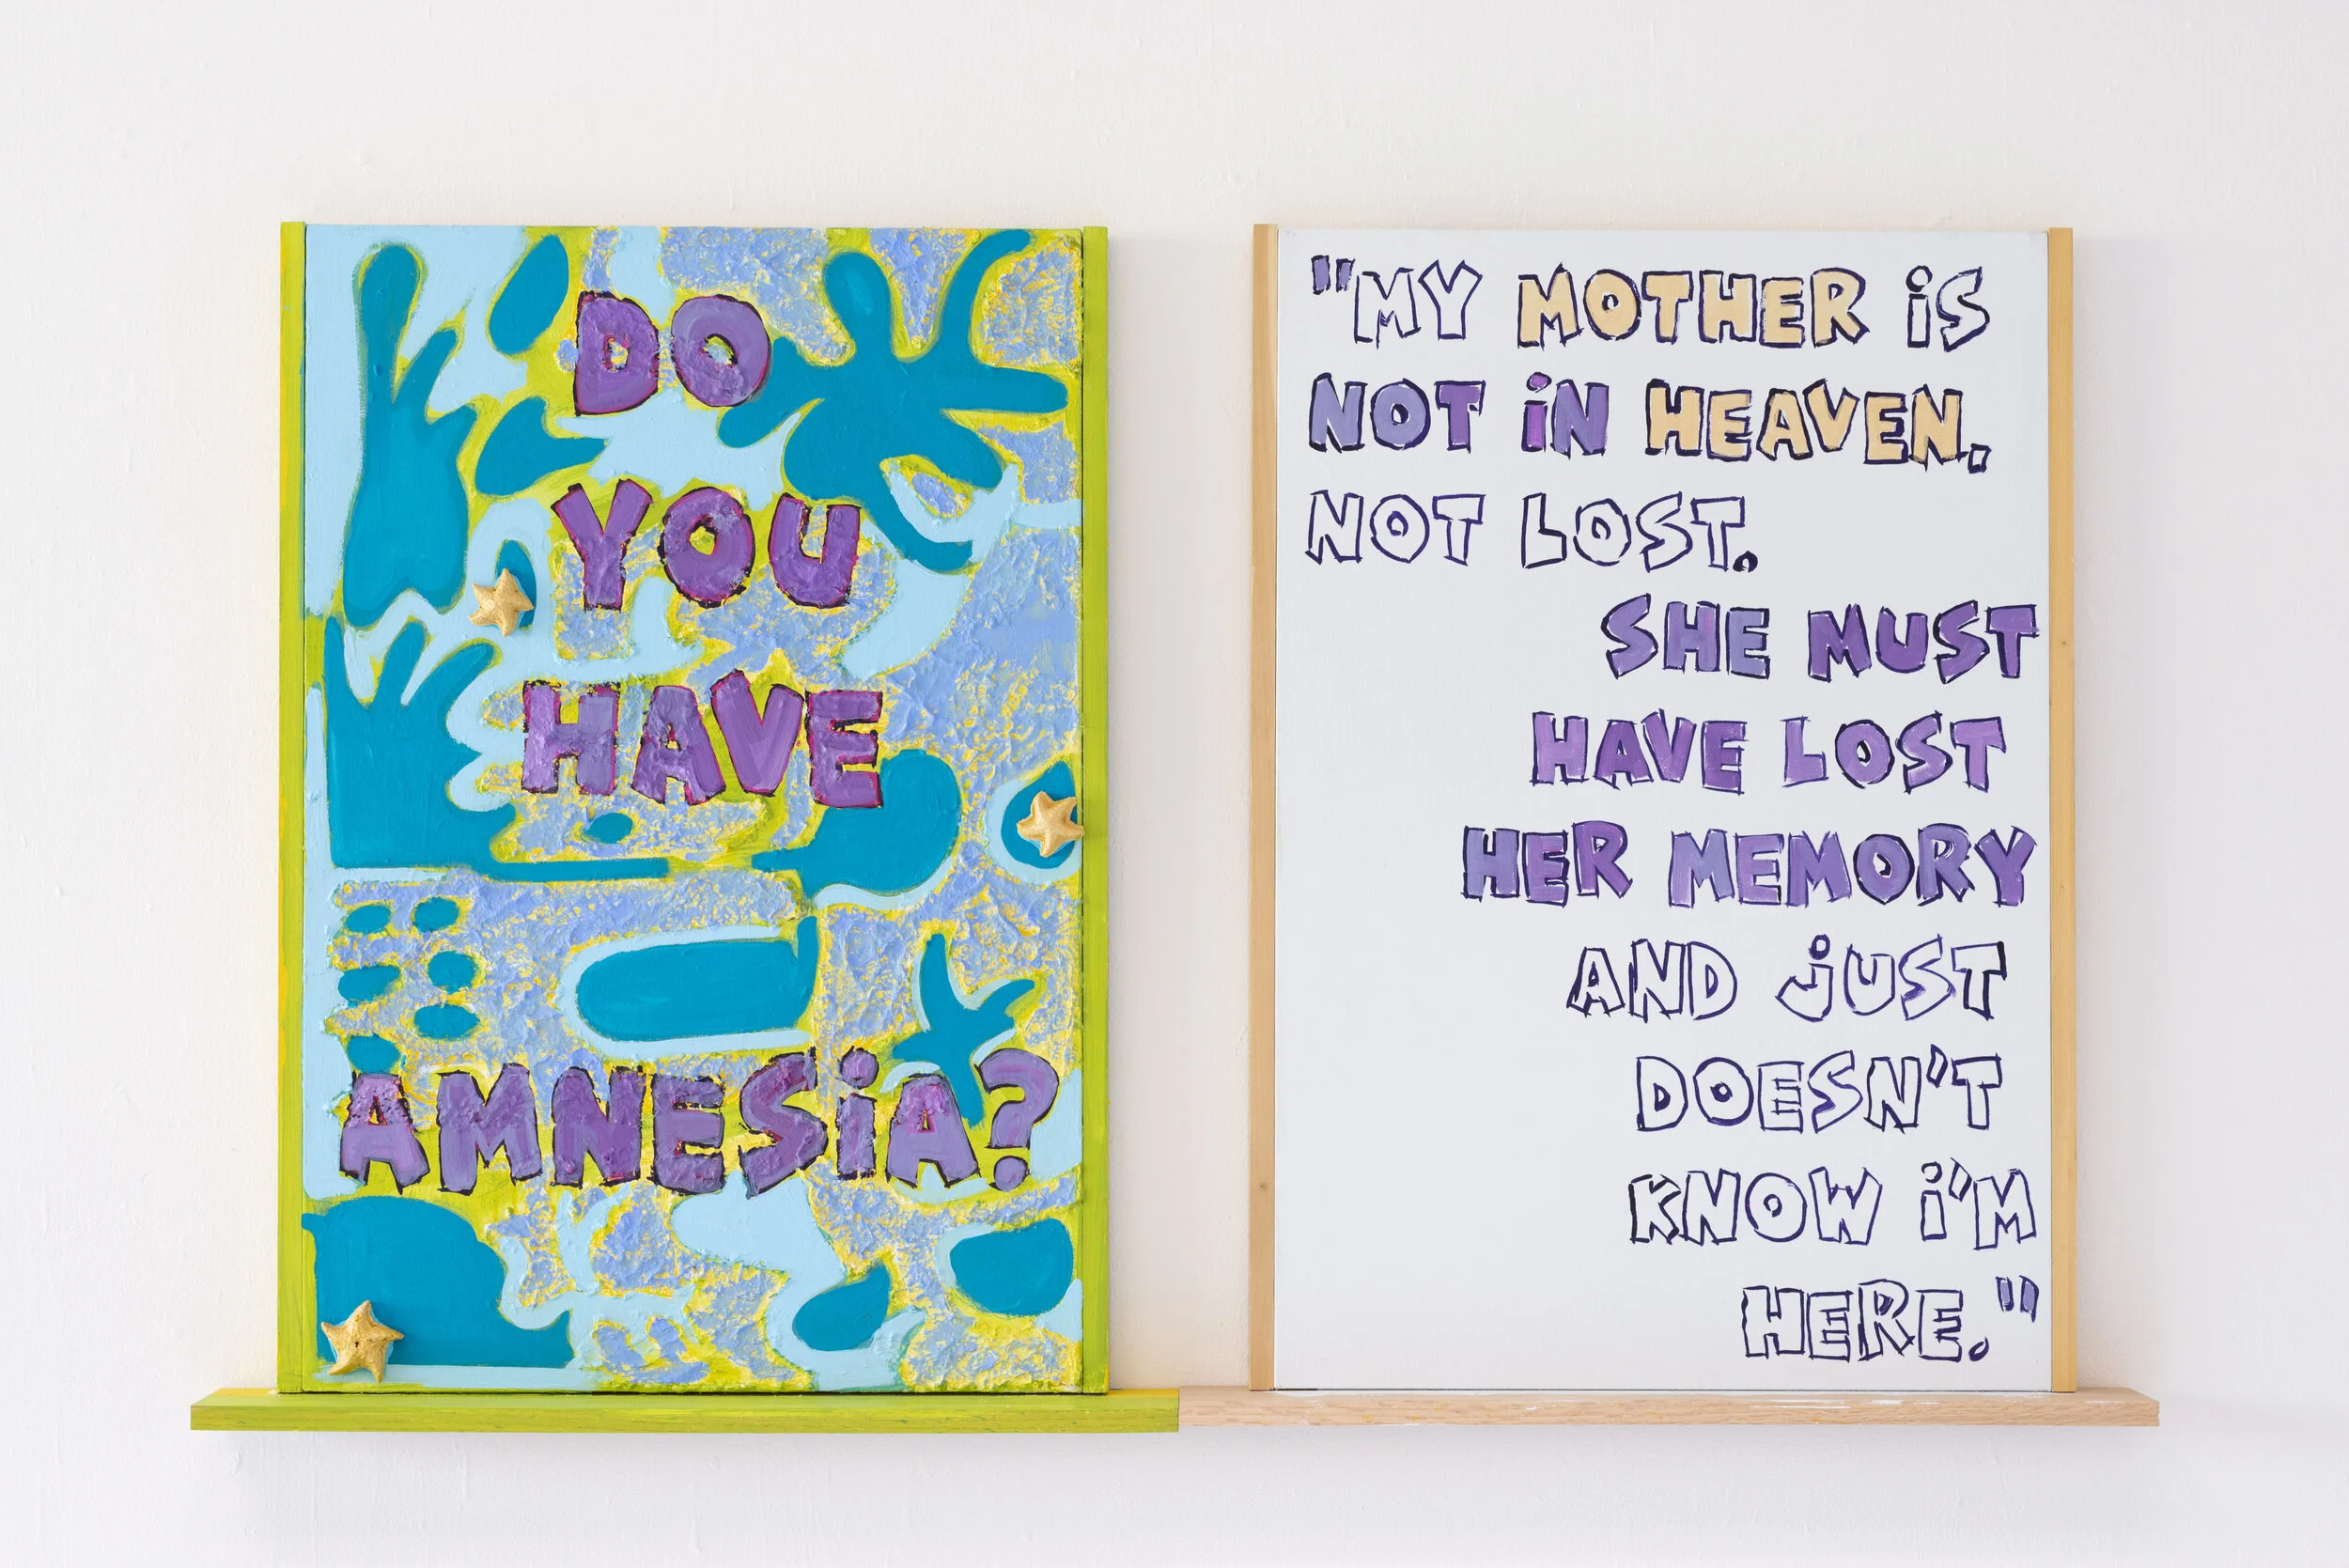 DO
YOU
HAVE
AMNESiA?
"MY MOTHER iS
NOT iN HEAVEN,
NOT LOST.
SHE MUST
HAVE LOST
HER MEMORY
AND jUST
DOESN'T
KNOW i'M
HERE."